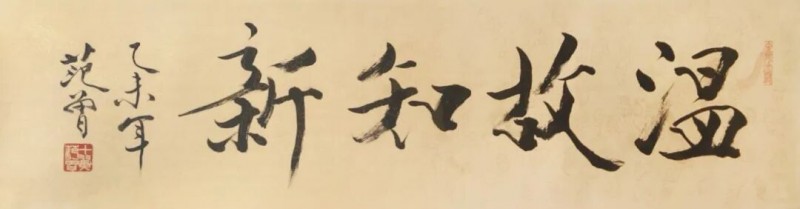 温故知新
乙未年
范曾